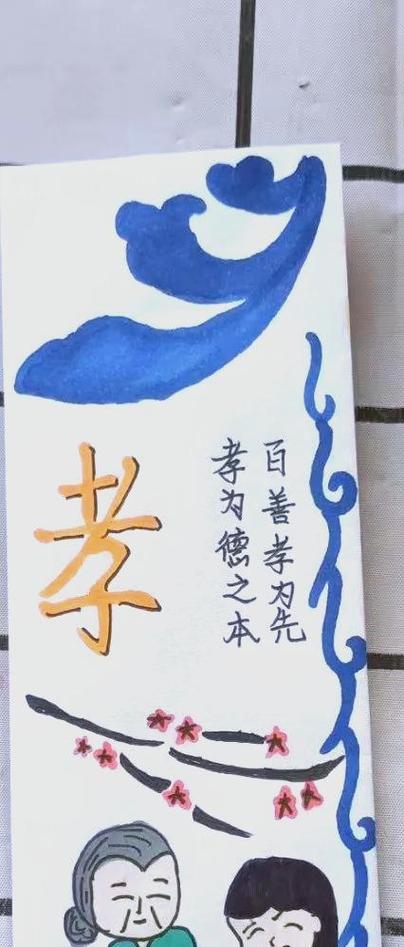 百善孝为先
孝为德之本
孝